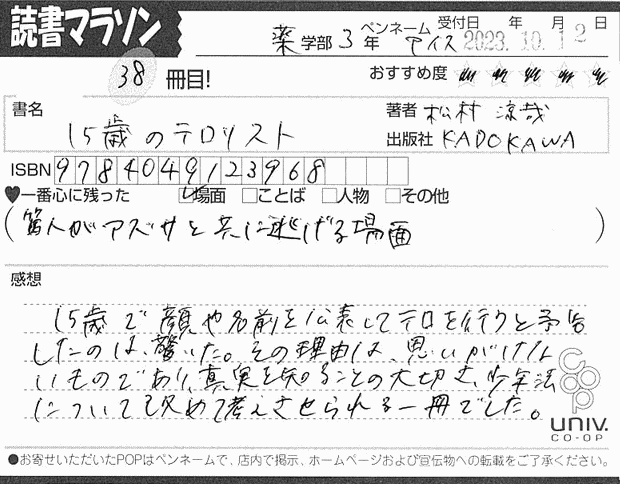 読書マラソン
薬学部3年 ペンネーム アイス 受付日 年 月 日 2023.10.12
38冊目! おすすめ度
書名 15歳のテロリスト
著者 松村涼哉
出版社 KADOKAWA
ISBN 9784049123968
♥一番心に残った ☑場面 □ことば □人物 □その他
(篤人がアズサと共に逃げる場面)
感想
15歳で顔や名前を公表してテロを行うと予告
したのは、驚いた。その理由は、思いがけな
いものであり、真実を知ることの大切さ、少年法
についても改めて考えさせられる一冊でした。
coop
UNIV.
CO-OP
●お寄せいただいたPOPはペンネームで、店内で掲示、ホームページおよび宣伝物への転載をご了承ください。